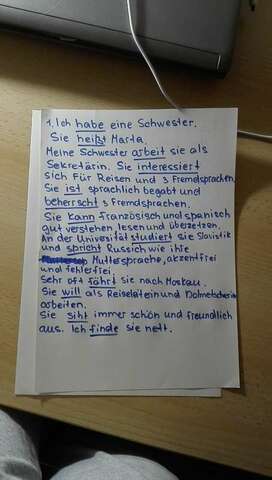 1. Ich habe eine Schwester.
Sie heißt Marta.
Meine Schwester arbeit sie als
Sekretärin. Sie interessiert
sich für Reisen und 3 Fremdsprachen.
Sie ist sprachlich begabt und
beherrscht 3 Fremdsprachen.
Sie kann Französisch und spanisch
gut verstehen lesen und übezetzen.
An der Universität studiert sie Slavistik
und spricht Russich wie ihre
Muttersprache, akzentfrei
und fehlerfrei
Sehr oft fährt sie nach Moskau.
Sie will als Reiseleterin und Dolmetscherin
arbeiten.
Sie siht immer schön und freundlich
aus. Ich finde sie nett.